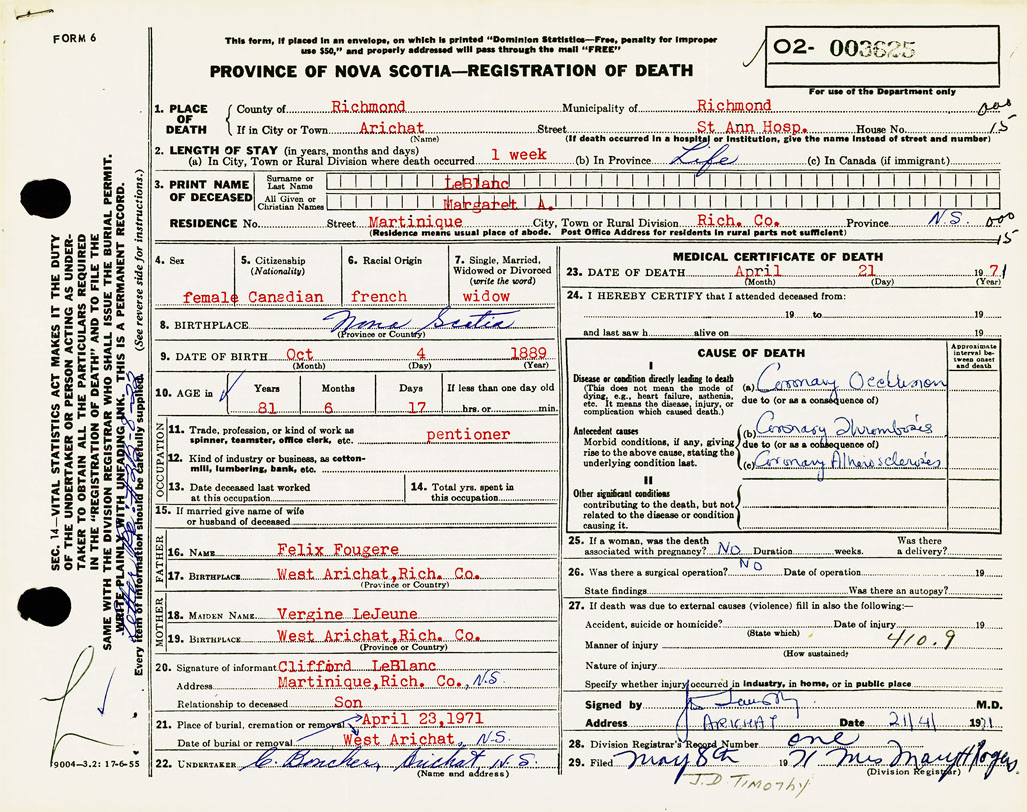 FORM 6
This form, if placed in an envelope, on which is printed "Dominion Statistics—Free, penalty for improper
use $50," and properly addressed will pass through the mail "FREE"
PROVINCE OF NOVA SCOTIA—REGISTRATION OF DEATH
02- 003625
For use of the Department only
1. PLACE OF DEATH County of Richmond Municipality of Richmond
If in City or Town Arichat Street St Ann Hosp. House No. 15
(Name) (If death occurred in a hospital or institution, give the name instead of street and number)
2. LENGTH OF STAY (in years, months and days)
(a) In City, Town or Rural Division where death occurred 1 week (b) In Province Life (c) In Canada (if immigrant)
3. PRINT NAME OF DECEASED Surname or Last Name LeBlanc
All Given or Christian Names Margaret A.
RESIDENCE No. Street Martinique City, Town or Rural Division Rich. Co. Province N.S.
(Residence means usual place of abode. Post Office Address for residents in rural parts not sufficient)
15
4. Sex female
5. Citizenship (Nationality) Canadian
6. Racial Origin french
7. Single, Married, Widowed or Divorced (write the word) widow
8. BIRTHPLACE Nova Scotia
(Province or Country)
9. DATE OF BIRTH Oct 4 1889
(Month) (Day) (Year)
10. AGE in Years Months Days If less than one day old
81 6 17 hrs. or min.
OCCUPATION
11. Trade, profession, or kind of work as
spinner, teamster, office clerk, etc. pentioner
12. Kind of industry or business, as cotton-
mill, lumbering, bank, etc.
13. Date deceased last worked
at this occupation
14. Total yrs. spent in
this occupation
15. If married give name of wife
or husband of deceased
FATHER
16. NAME Felix Fougere
17. BIRTHPLACE West Arichat,Rich. Co.
(Province or Country)
MOTHER
18. MAIDEN NAME Vergine LeJeune
19. BIRTHPLACE West Arichat,Rich. Co.
(Province or Country)
20. Signature of informant Clifford LeBlanc
Address Martinique,Rich. Co., N.S.
Relationship to deceased Son
21. Place of burial, cremation or removal April 23,1971
Date of burial or removal West Arichat, N.S.
22. UNDERTAKER C. Boucher, Arichat N.S.
(Name and address)
MEDICAL CERTIFICATE OF DEATH
23. DATE OF DEATH April 21 1971
(Month) (Day) (Year)
24. I HEREBY CERTIFY that I attended deceased from:
19 to 19
and last saw h alive on 19
CAUSE OF DEATH
Approximate interval be-tween onset and death
I
Disease or condition directly leading to death
(This does not mean the mode of
dying, e.g., heart failure, asthenia,
etc. It means the disease, injury, or
complication which caused death.)
(a) Coronary Occlusion
due to (or as a consequence of)
Antecedent causes
Morbid conditions, if any, giving
rise to the above cause, stating the
underlying condition last.
(b) Coronary Thrombosis
due to (or as a consequence of)
(c) Coronary Atheiosclerises
II
Other significant conditions
contributing to the death, but not
related to the disease or condition
causing it.
25. If a woman, was the death
associated with pregnancy? NO Duration weeks.
Was there
a delivery?
26. Was there a surgical operation? NO Date of operation 19
State findings Was there an autopsy?
27. If death was due to external causes (violence) fill in also the following:—
Accident, suicide or homicide? Date of injury 19
(State which)
Manner of injury 410.9
(How sustained)
Nature of injury
Specify whether injury occurred in industry, in home, or in public place
Signed by M.D.
Address ARICHAT Date 21/4/ 1971
28. Division Registrar's Record Number one
29. Filed May 8th 1971 Mrs Mary H Rogers
(Division Registrar)
J.D. TIMOTHY
SEC. 14—VITAL STATISTICS ACT MAKES IT THE DUTY
OF THE UNDERTAKER OR PERSON ACTING AS UNDER-
TAKER TO OBTAIN ALL THE PARTICULARS REQUIRED
IN THE "REGISTRATION OF DEATH" AND TO FILE THE
SAME WITH THE DIVISION REGISTRAR WHO SHALL ISSUE THE BURIAL PERMIT.
WRITE PLAINLY WITH UNFADING INK. THIS IS A PERMANENT RECORD.
Every item of information should be carefully supplied. (See reverse side for instructions.)
9004—3.2: 17-6-55